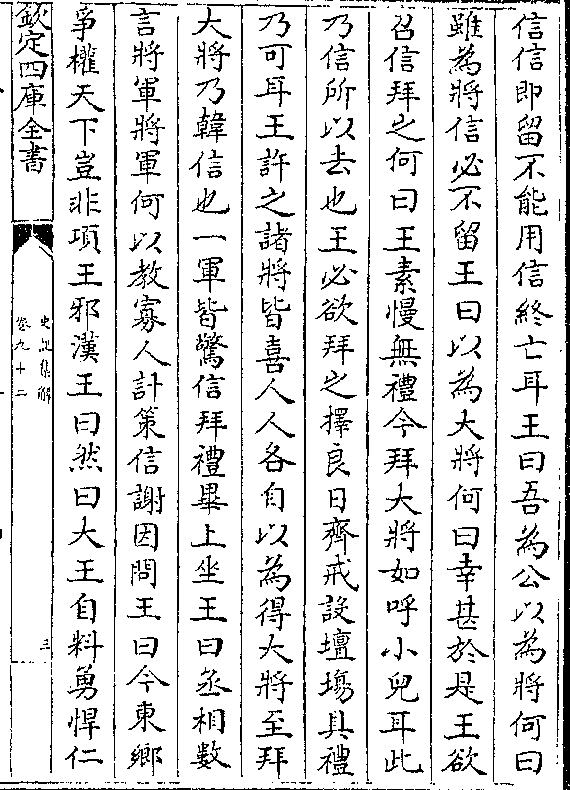 信信即留不能用信終亡耳王曰吾為公以為將何曰
雖為將信必不留王曰以為大將何曰幸甚於是王欲
召信拜之何曰王素慢無禮今拜大將如呼小兒耳此
乃信所以去也王必欲拜之擇良日齊戒設壇塲具禮
乃可耳王許之諸將皆喜人人各自以為得大將至拜
大將乃韓信也一軍皆驚信拜禮畢上坐王曰丞相數
言將軍將軍何以教寡人計策信謝因問王曰今東鄉
爭權天下豈非項王邪漢王曰然曰大王自料勇悍仁
欽定四庫全書
史記集解
卷九十二
三